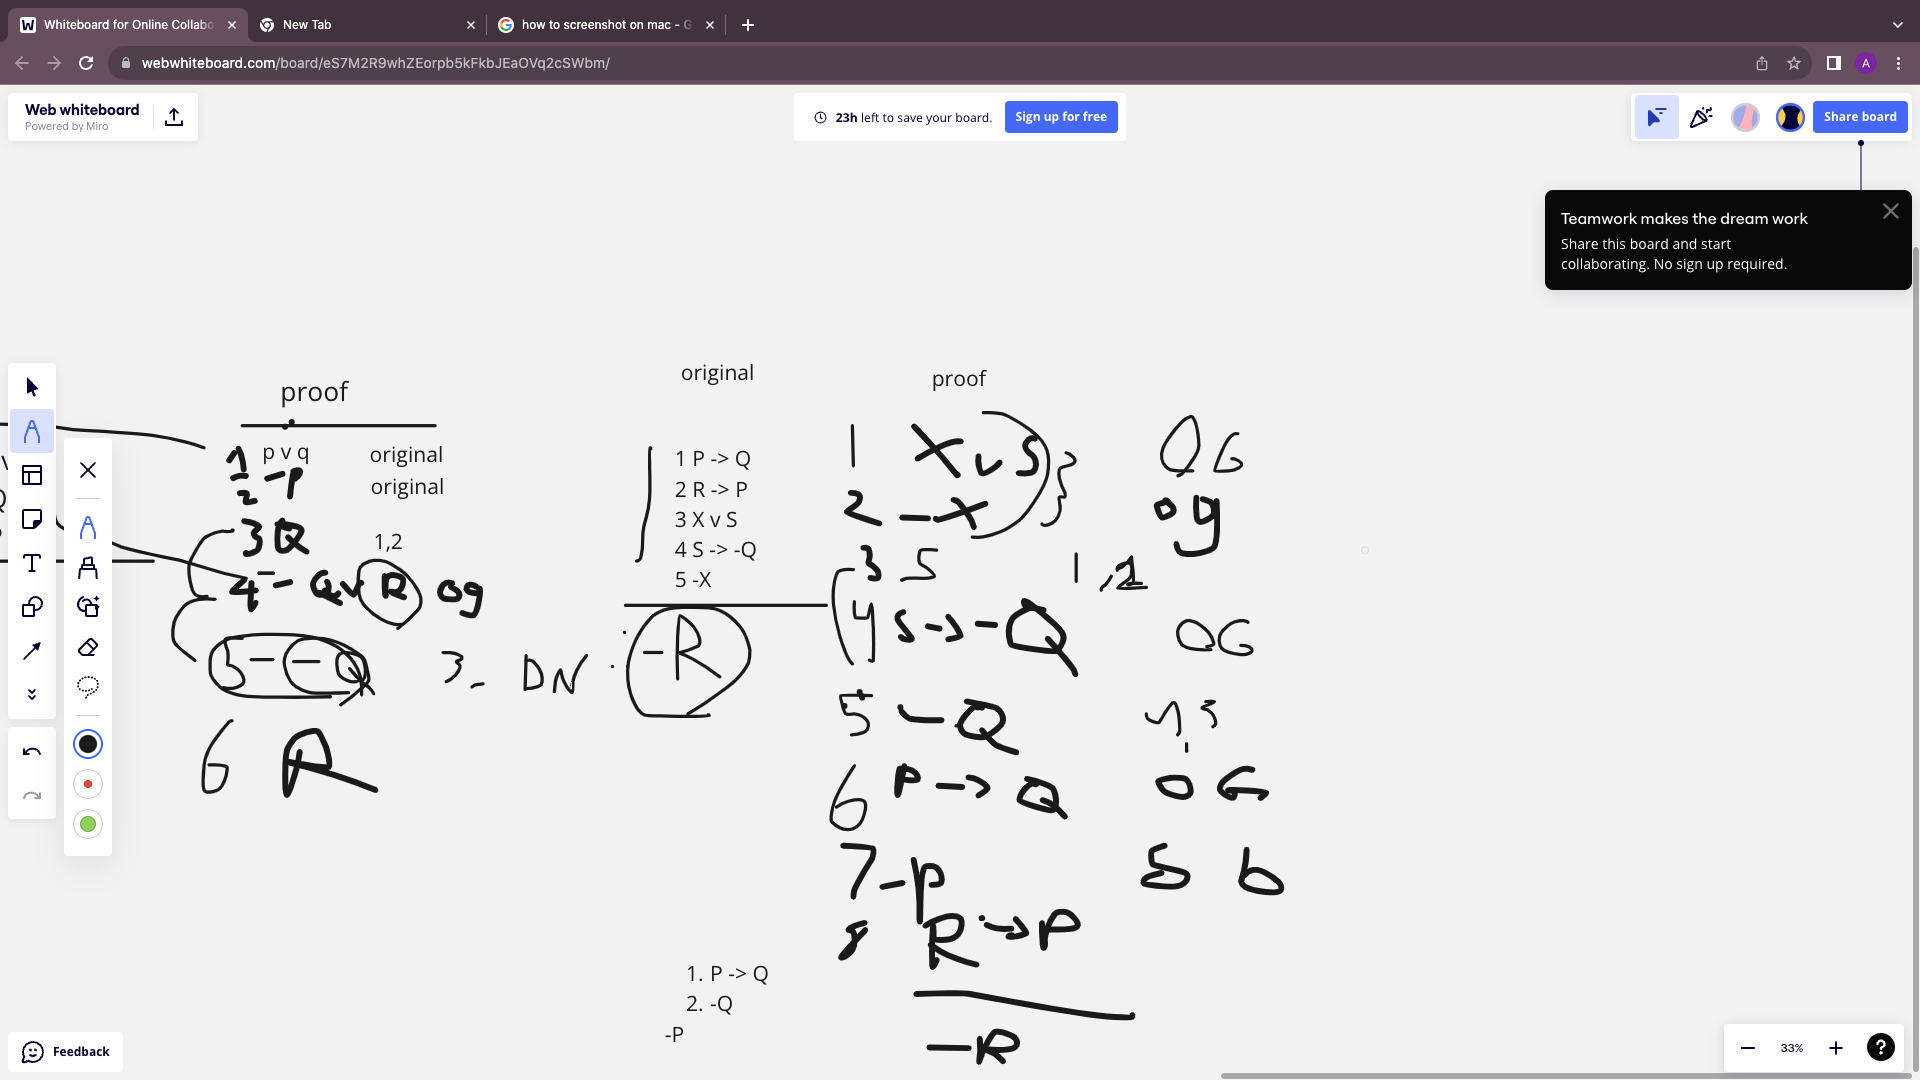 Whiteboard for Online Collabo
New Tab
how to screenshot on mac - G
webwhiteboard.com/board/eS7M2R9whZEorpb5kFkbJEaOVq2cSWbm/
A
Web whiteboard
Powered by Miro
23h left to save your board.
Sign up for free
Share board
Teamwork makes the dream work
Share this board and start
collaborating. No sign up required.
proof
1 p v q original
2 -p original
3 Q 1,2
4 - Q v R og
5 - - Q 3 - DN
6 R
original
1 P -> Q
2 R -> P
3 X v S
4 S -> -Q
5 -X
-R
proof
1 X v S OG
2 -X og
3 S 1,2
4 S -> -Q OG
5 -Q 4 3
6 P -> Q OG
7 -p 5 6
8 R -> P
-R
1. P -> Q
2. -Q
-P
Feedback
33%